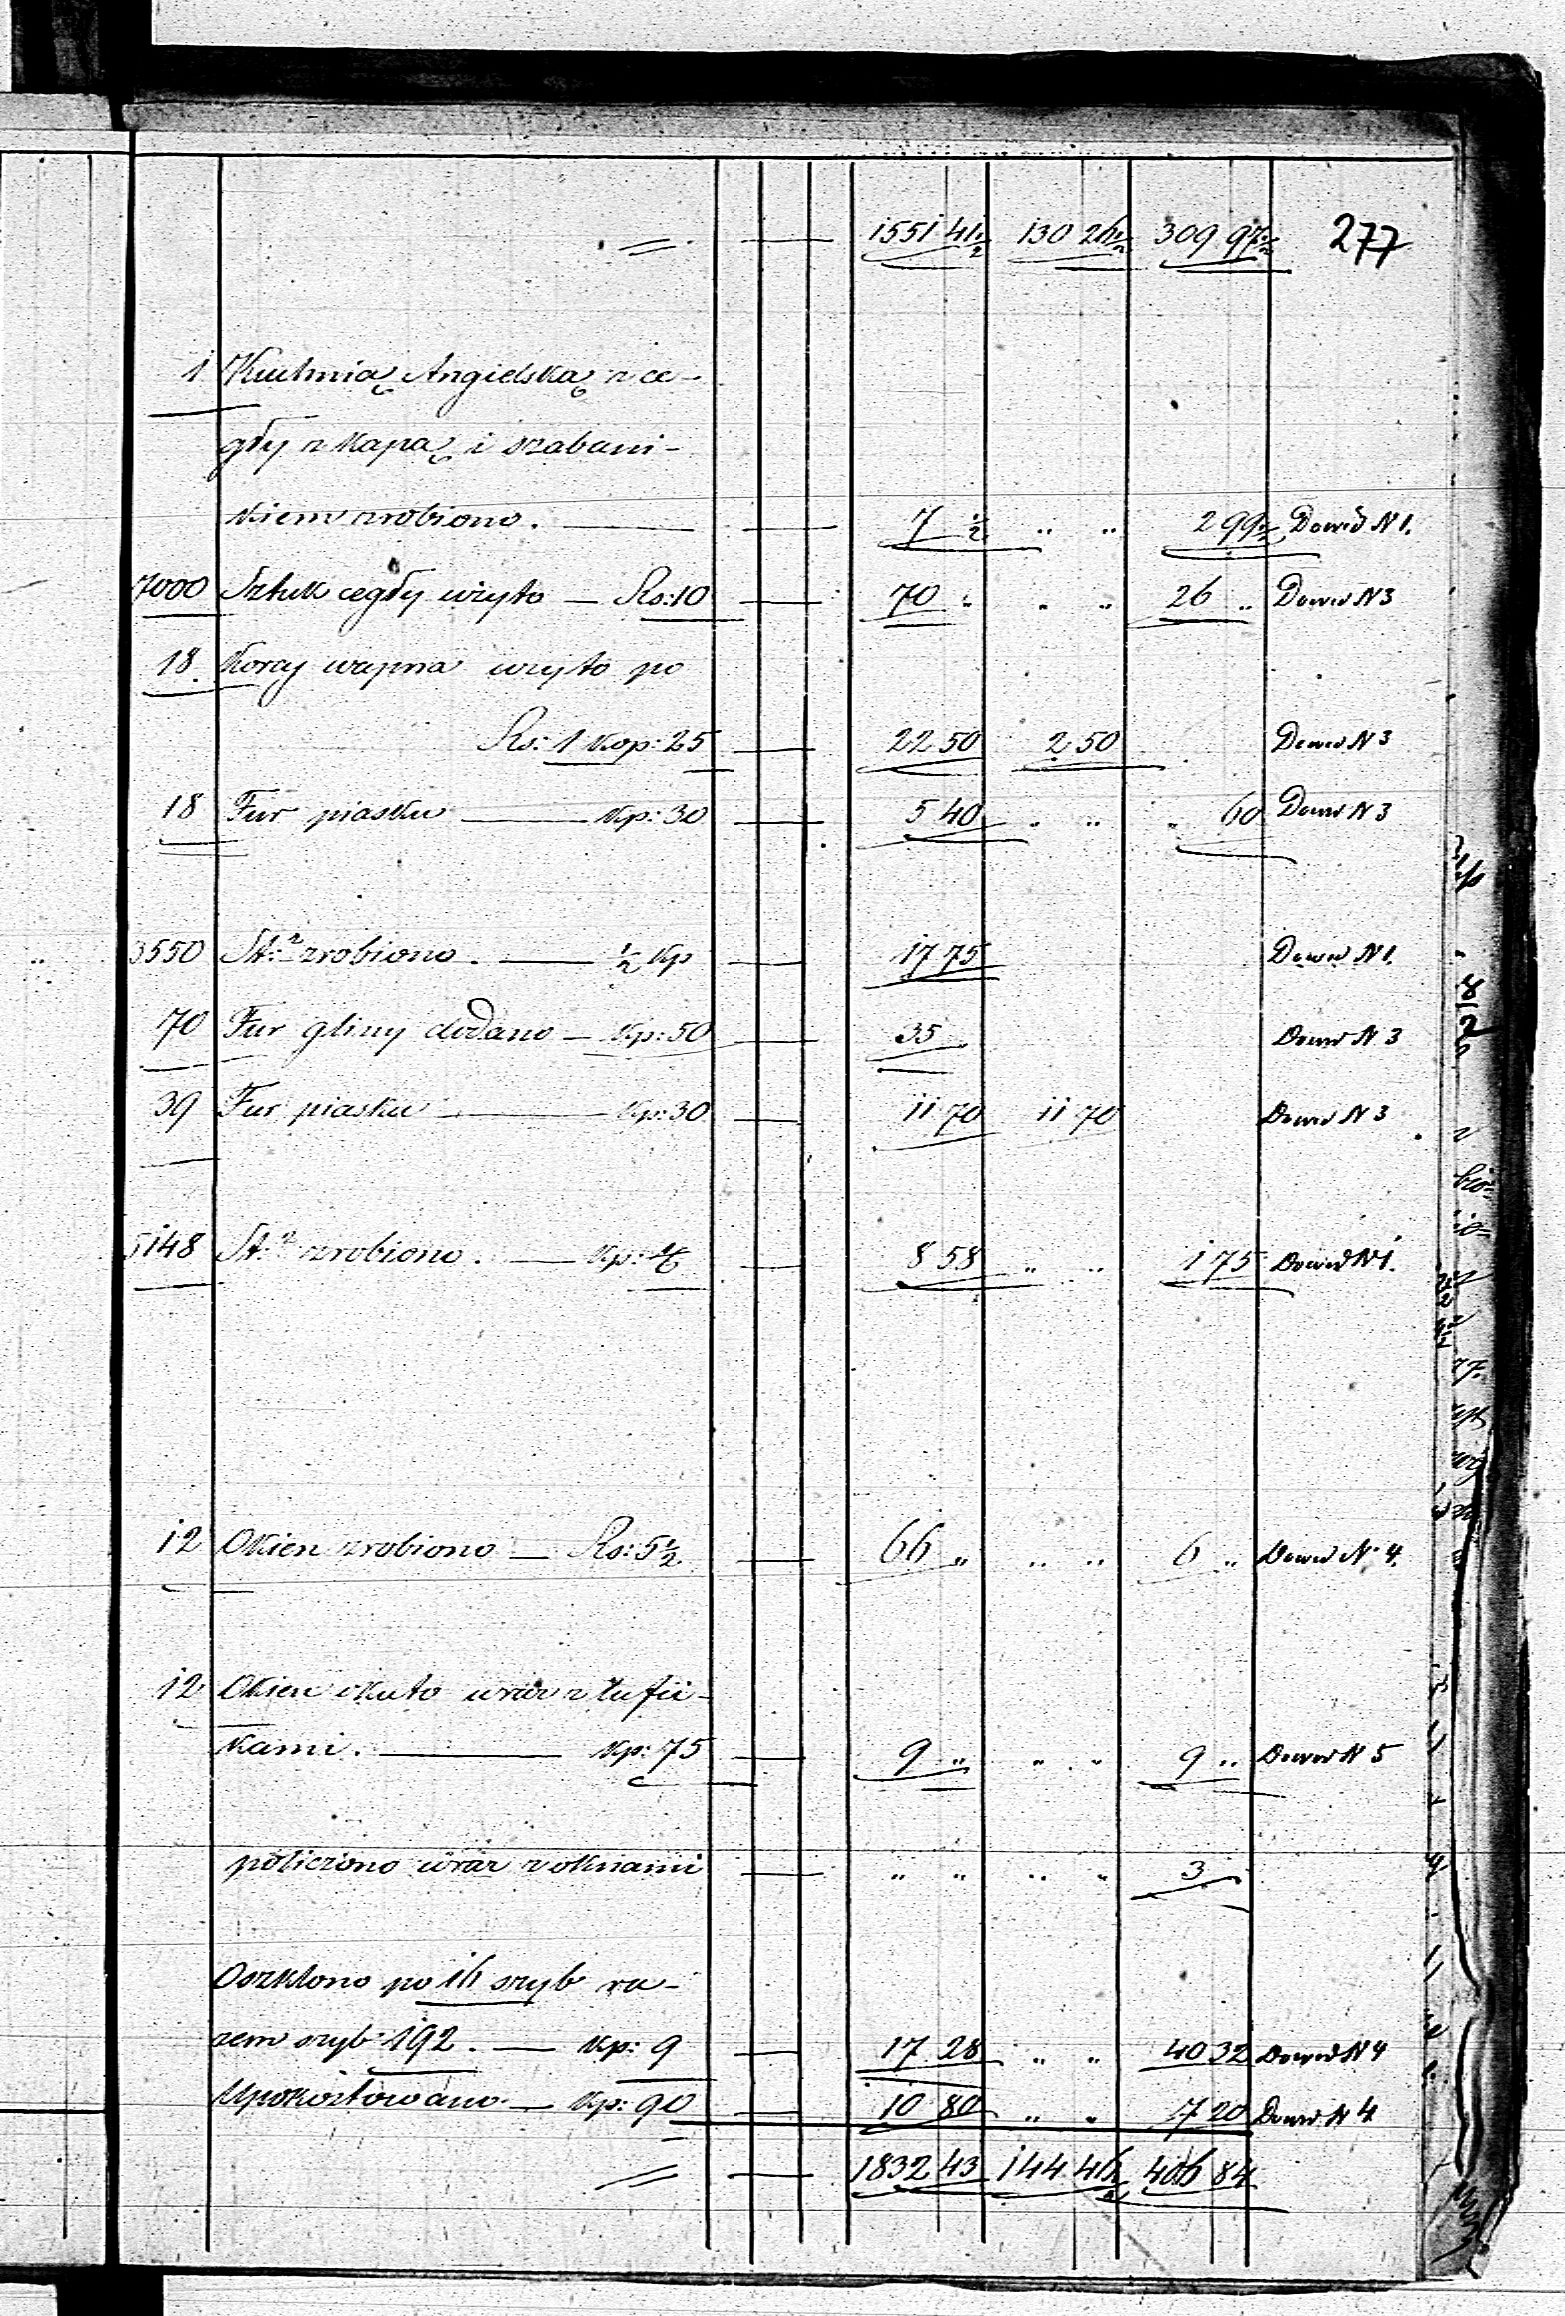 1551 41½ 130 26½ 309 97½ 277
1 Kuchnią Angielską z ce-
gły z Kapą i szabani-
kiem zrobiono. 7 ½ " " 2 99½ Dowód N 1.
7000 Sztuk cegły użyto — Rs: 10 70 " " " 26 " Dowód N 3
18. Korcy wapna użyto po
Rs: 1 Kop: 25 22 50 2 50 Dowód N 3
18 Fur piasku — Kp: 30 5 40 " " " 60 Dowód N 3
3550 St: zrobiono. — ½ Kp 17 75 Dowód N 1.
70 Fur gliny dodano — Kp: 50 35 Dowód N 3
39 Fur piasku — Kp: 30 11 70 11 70 Dowód N 3
5148 St: zrobiono. — Kp: 8 58 " " 1 75 Dowód N 1.
12 Okien zrobiono — Rs: 5½ 66 " " " 6 " Dowód N 4.
12 Okien okuto wraz z lufci-
kami. — Kp: 75 9 " " " 9 " Dowód N 5
policzono wraz z oknami " " " " 3
Oszklono po 16 szyb ra-
zem szyb 192. — Kp: 9 17 28 " " 40 32 Dowód N 4
Upokostowano — Kp: 90 10 80 " " 7 20 Dowód N 4
1832 43 144 46½ 406 84